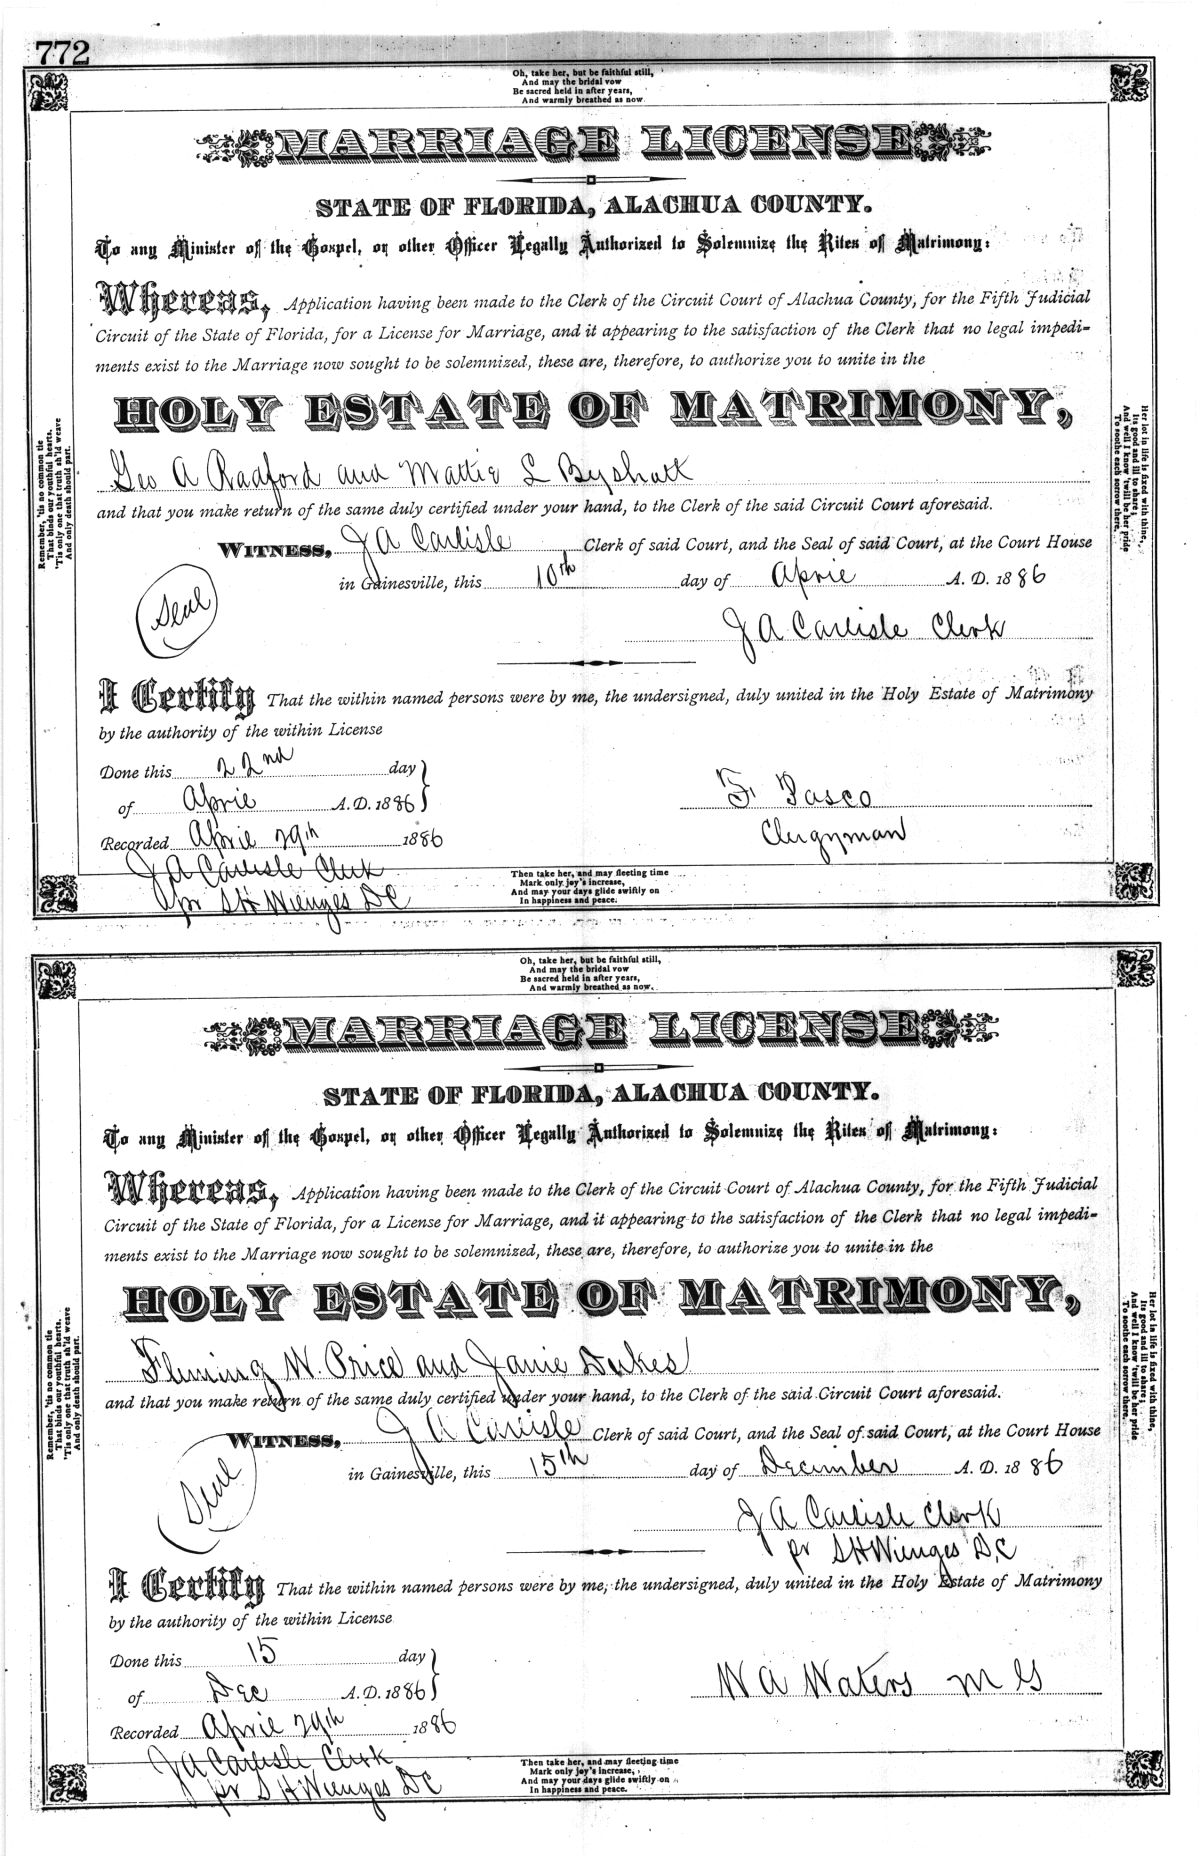 772
Oh, take her, but be faithful still,
And may the bridal vow
Be sacred held in after years,
And warmly breathed as now.
MARRIAGE LICENSE
STATE OF FLORIDA, ALACHUA COUNTY.
To any Minister of the Gospel, or other Officer Legally Authorized to Solemnize the Rites of Matrimony:
Whereas, Application having been made to the Clerk of the Circuit Court of Alachua County, for the Fifth Judicial
Circuit of the State of Florida, for a License for Marriage, and it appearing to the satisfaction of the Clerk that no legal impedi-
ments exist to the Marriage now sought to be solemnized, these are, therefore, to authorize you to unite in the
HOLY ESTATE OF MATRIMONY,
Geo A Radford and Mattie L Byshatt
and that you make return of the same duly certified under your hand, to the Clerk of the said Circuit Court aforesaid.
WITNESS, J A Carlisle Clerk of said Court, and the Seal of said Court, at the Court House
in Gainesville, this 10th day of April A. D. 1886
Seal
J A Carlisle Clerk
I Certify That the within named persons were by me, the undersigned, duly united in the Holy Estate of Matrimony
by the authority of the within License
Done this 22nd day
of April A. D. 1886
F. Pasco
Recorded April 29th 1886
Clergyman
J A Carlisle Clerk
pr S H Wienges D C
Then take her, and may fleeting time
Mark only joy's increase,
And may your days glide swiftly on
In happiness and peace.
Remember, 'tis no common tie
That binds our youthful hearts.
'Tis only one that truth sh'ld weave
And only death should part.
Her lot in life is fixed with thine,
Its good and ill to share;
And well I know 'twill be her pride
To soothe each sorrow there.
Oh, take her, but be faithful still,
And may the bridal vow
Be sacred held in after years,
And warmly breathed as now.
MARRIAGE LICENSE
STATE OF FLORIDA, ALACHUA COUNTY.
To any Minister of the Gospel, or other Officer Legally Authorized to Solemnize the Rites of Matrimony:
Whereas, Application having been made to the Clerk of the Circuit Court of Alachua County, for the Fifth Judicial
Circuit of the State of Florida, for a License for Marriage, and it appearing to the satisfaction of the Clerk that no legal impedi-
ments exist to the Marriage now sought to be solemnized, these are, therefore, to authorize you to unite in the
HOLY ESTATE OF MATRIMONY,
Fleming W. Price and Janie Dukes
and that you make return of the same duly certified under your hand, to the Clerk of the said Circuit Court aforesaid.
WITNESS, J A Carlisle Clerk of said Court, and the Seal of said Court, at the Court House
in Gainesville, this 15th day of December A. D. 1886
Seal
J A Carlisle Clerk
pr S H Wienges D.C
I Certify That the within named persons were by me, the undersigned, duly united in the Holy Estate of Matrimony
by the authority of the within License
Done this 15 day
of Dec A. D. 1886
W A Waters M G
Recorded April 29th 1886
J A Carlisle Clerk
pr S H Wienges D C
Then take her, and may fleeting time
Mark only joy's increase,
And may your days glide swiftly on
In happiness and peace.
Remember, 'tis no common tie
That binds our youthful hearts.
'Tis only one that truth sh'ld weave
And only death should part.
Her lot in life is fixed with thine,
Its good and ill to share;
And well I know 'twill be her pride
To soothe each sorrow there.